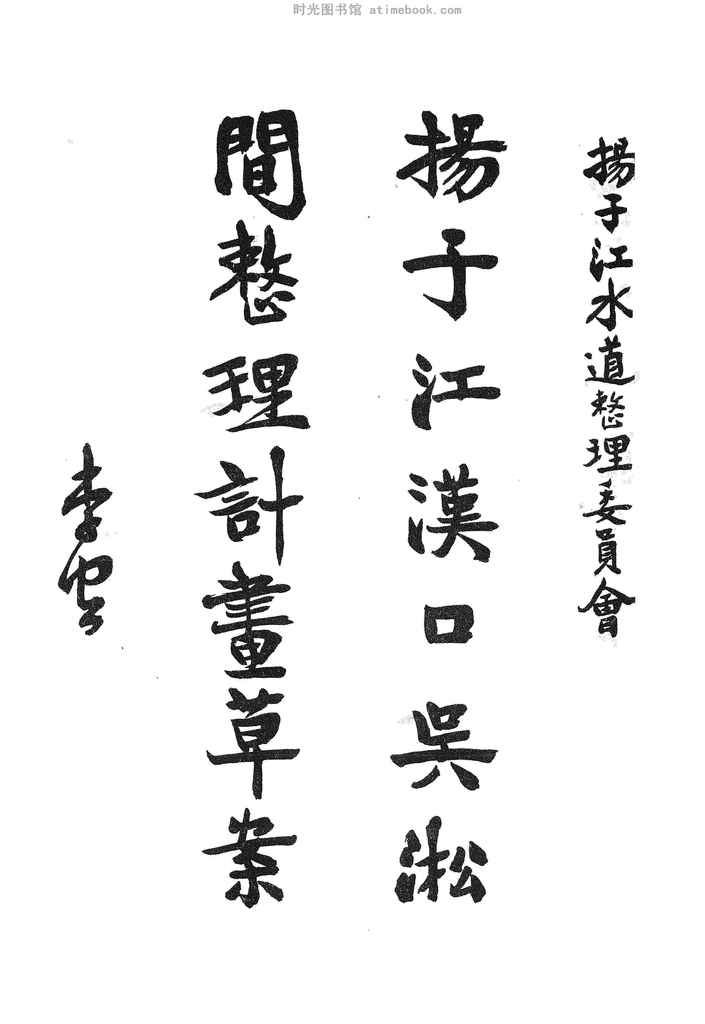 时光图书馆 atimebook.com
揚子江水道整理委員會
揚子江漢口吳淞
間整理計畫草案
李